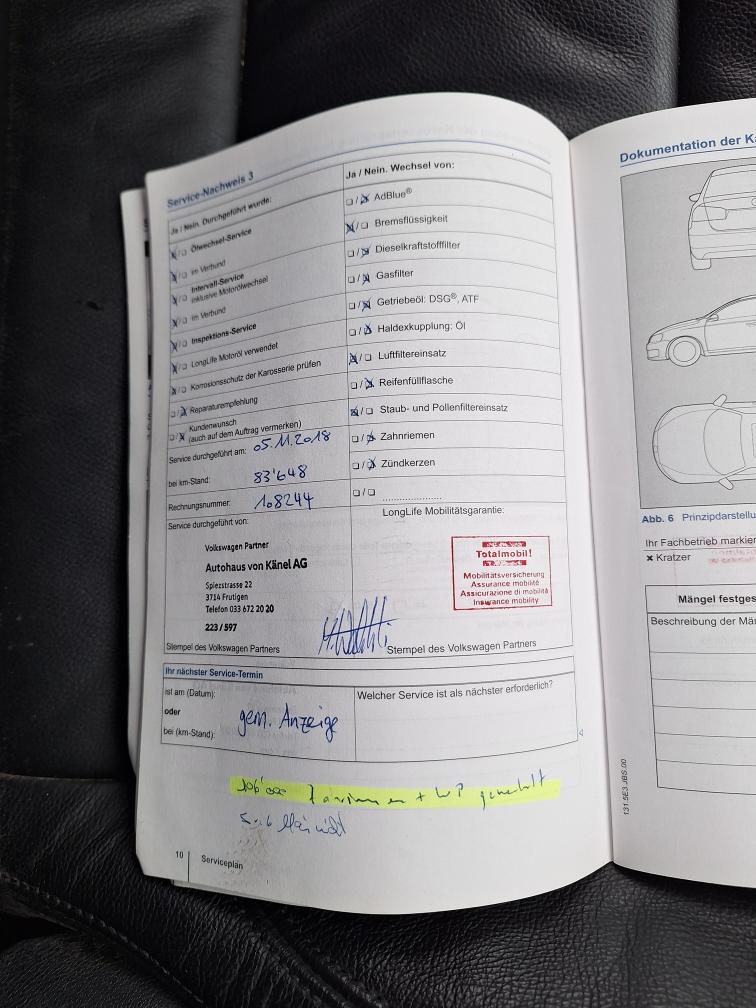 Service-Nachweis 3
Ja / Nein. Durchgeführt wurde:
☒/☐ Ölwechsel-Service
☒/☐ im Verbund
☒/☐ Intervall-Service
inklusive Motorölwechsel
☒/☐ im Verbund
☒/☐ Inspektions-Service
☒/☐ LongLife Motoröl verwendet
☒/☐ Korrosionsschutz der Karosserie prüfen
☐/☒ Reparaturempfehlung
☐/☒ Kundenwunsch
(auch auf dem Auftrag vermerken)
Service durchgeführt am: 05.11.2018
bei km-Stand: 83'648
Rechnungsnummer: 108244
Service durchgeführt von:
Volkswagen Partner
Autohaus von Känel AG
Spiezstrasse 22
3714 Frutigen
Telefon 033 672 20 20
223 / 597
Stempel des Volkswagen Partners
Ja / Nein. Wechsel von:
☐/☒ AdBlue®
☒/☐ Bremsflüssigkeit
☐/☒ Dieselkraftstofffilter
☐/☒ Gasfilter
☐/☒ Getriebeöl: DSG®, ATF
☐/☒ Haldexkupplung: Öl
☒/☐ Luftfiltereinsatz
☐/☒ Reifenfüllflasche
☒/☐ Staub- und Pollenfiltereinsatz
☐/☒ Zahnriemen
☐/☒ Zündkerzen
☐/☐ ......................
LongLife Mobilitätsgarantie:
Totalmobil!
Mobilitätsversicherung
Assurance mobilité
Assicurazione di mobilità
Insurance mobility
Stempel des Volkswagen Partners
Ihr nächster Service-Termin
ist am (Datum):
oder
bei (km-Stand):
gem. Anzeige
Welcher Service ist als nächster erforderlich?
+ WP
10 Serviceplan
Dokumentation der Ka
Abb. 6 Prinzipdarstellu
Ihr Fachbetrieb markier
× Kratzer
Mängel festges
Beschreibung der Män
131.5E3.JBS.00